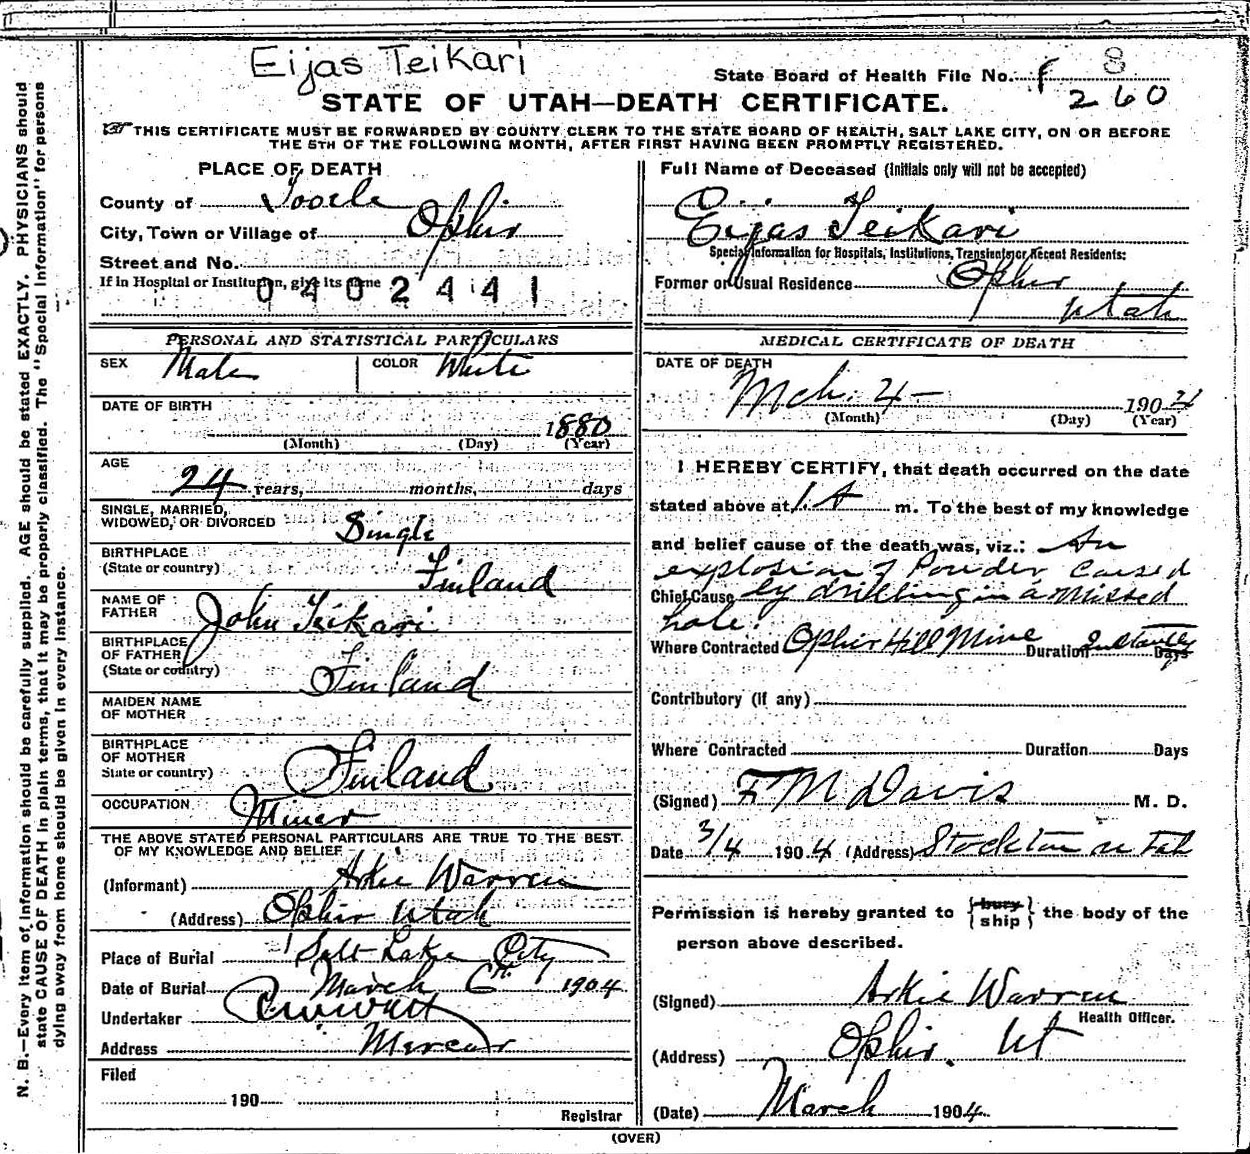 Eijas Teikari
State Board of Health File No. F 8
260
STATE OF UTAH—DEATH CERTIFICATE.
THIS CERTIFICATE MUST BE FORWARDED BY COUNTY CLERK TO THE STATE BOARD OF HEALTH, SALT LAKE CITY, ON OR BEFORE
THE 5TH OF THE FOLLOWING MONTH, AFTER FIRST HAVING BEEN PROMPTLY REGISTERED.
PLACE OF DEATH
County of Tooele
City, Town or Village of Ophir
Street and No.
If in Hospital or Institution, give its name
0402441
Full Name of Deceased (Initials only will not be accepted)
Eijas Teikari
Special Information for Hospitals, Institutions, Transients or Recent Residents:
Former or Usual Residence Ophir
Utah
PERSONAL AND STATISTICAL PARTICULARS
SEX Male COLOR White
DATE OF BIRTH
1880
(Month) (Day) (Year)
AGE
24 years, months, days
SINGLE, MARRIED,
WIDOWED, OR DIVORCED Single
BIRTHPLACE
(State or country) Finland
NAME OF
FATHER John Teikari
BIRTHPLACE
OF FATHER
(State or country) Finland
MAIDEN NAME
OF MOTHER
BIRTHPLACE
OF MOTHER
State or country) Finland
OCCUPATION Miner
THE ABOVE STATED PERSONAL PARTICULARS ARE TRUE TO THE BEST
OF MY KNOWLEDGE AND BELIEF
(Informant) Arkie Warren
(Address) Ophir Utah
Place of Burial Salt Lake City
Date of Burial March 6th 1904
Undertaker
Address Mercur
Filed
190
Registrar
MEDICAL CERTIFICATE OF DEATH
DATE OF DEATH
Mch. 4 — 1904
(Month) (Day) (Year)
I HEREBY CERTIFY, that death occurred on the date
stated above at 1. A m. To the best of my knowledge
and belief cause of the death was, viz.: An
explosion of Powder caused
Chief Cause by drilling in a missed
hole.
Where Contracted Ophir Hill Mine Duration Instantly Days
Contributory (if any)
Where Contracted Duration Days
(Signed) F M Davis M. D.
Date 3/4 1904 (Address) Stockton Utah
Permission is hereby granted to {bury
ship} the body of the
person above described.
(Signed) Arkie Warren
Health Officer.
(Address) Ophir. Ut
(Date) March 1904
(OVER)
N. B.—Every item of information should be carefully supplied. AGE should be stated EXACTLY. PHYSICIANS should
state CAUSE OF DEATH in plain terms, that it may be properly classified. The "Special Information" for persons
dying away from home should be given in every instance.